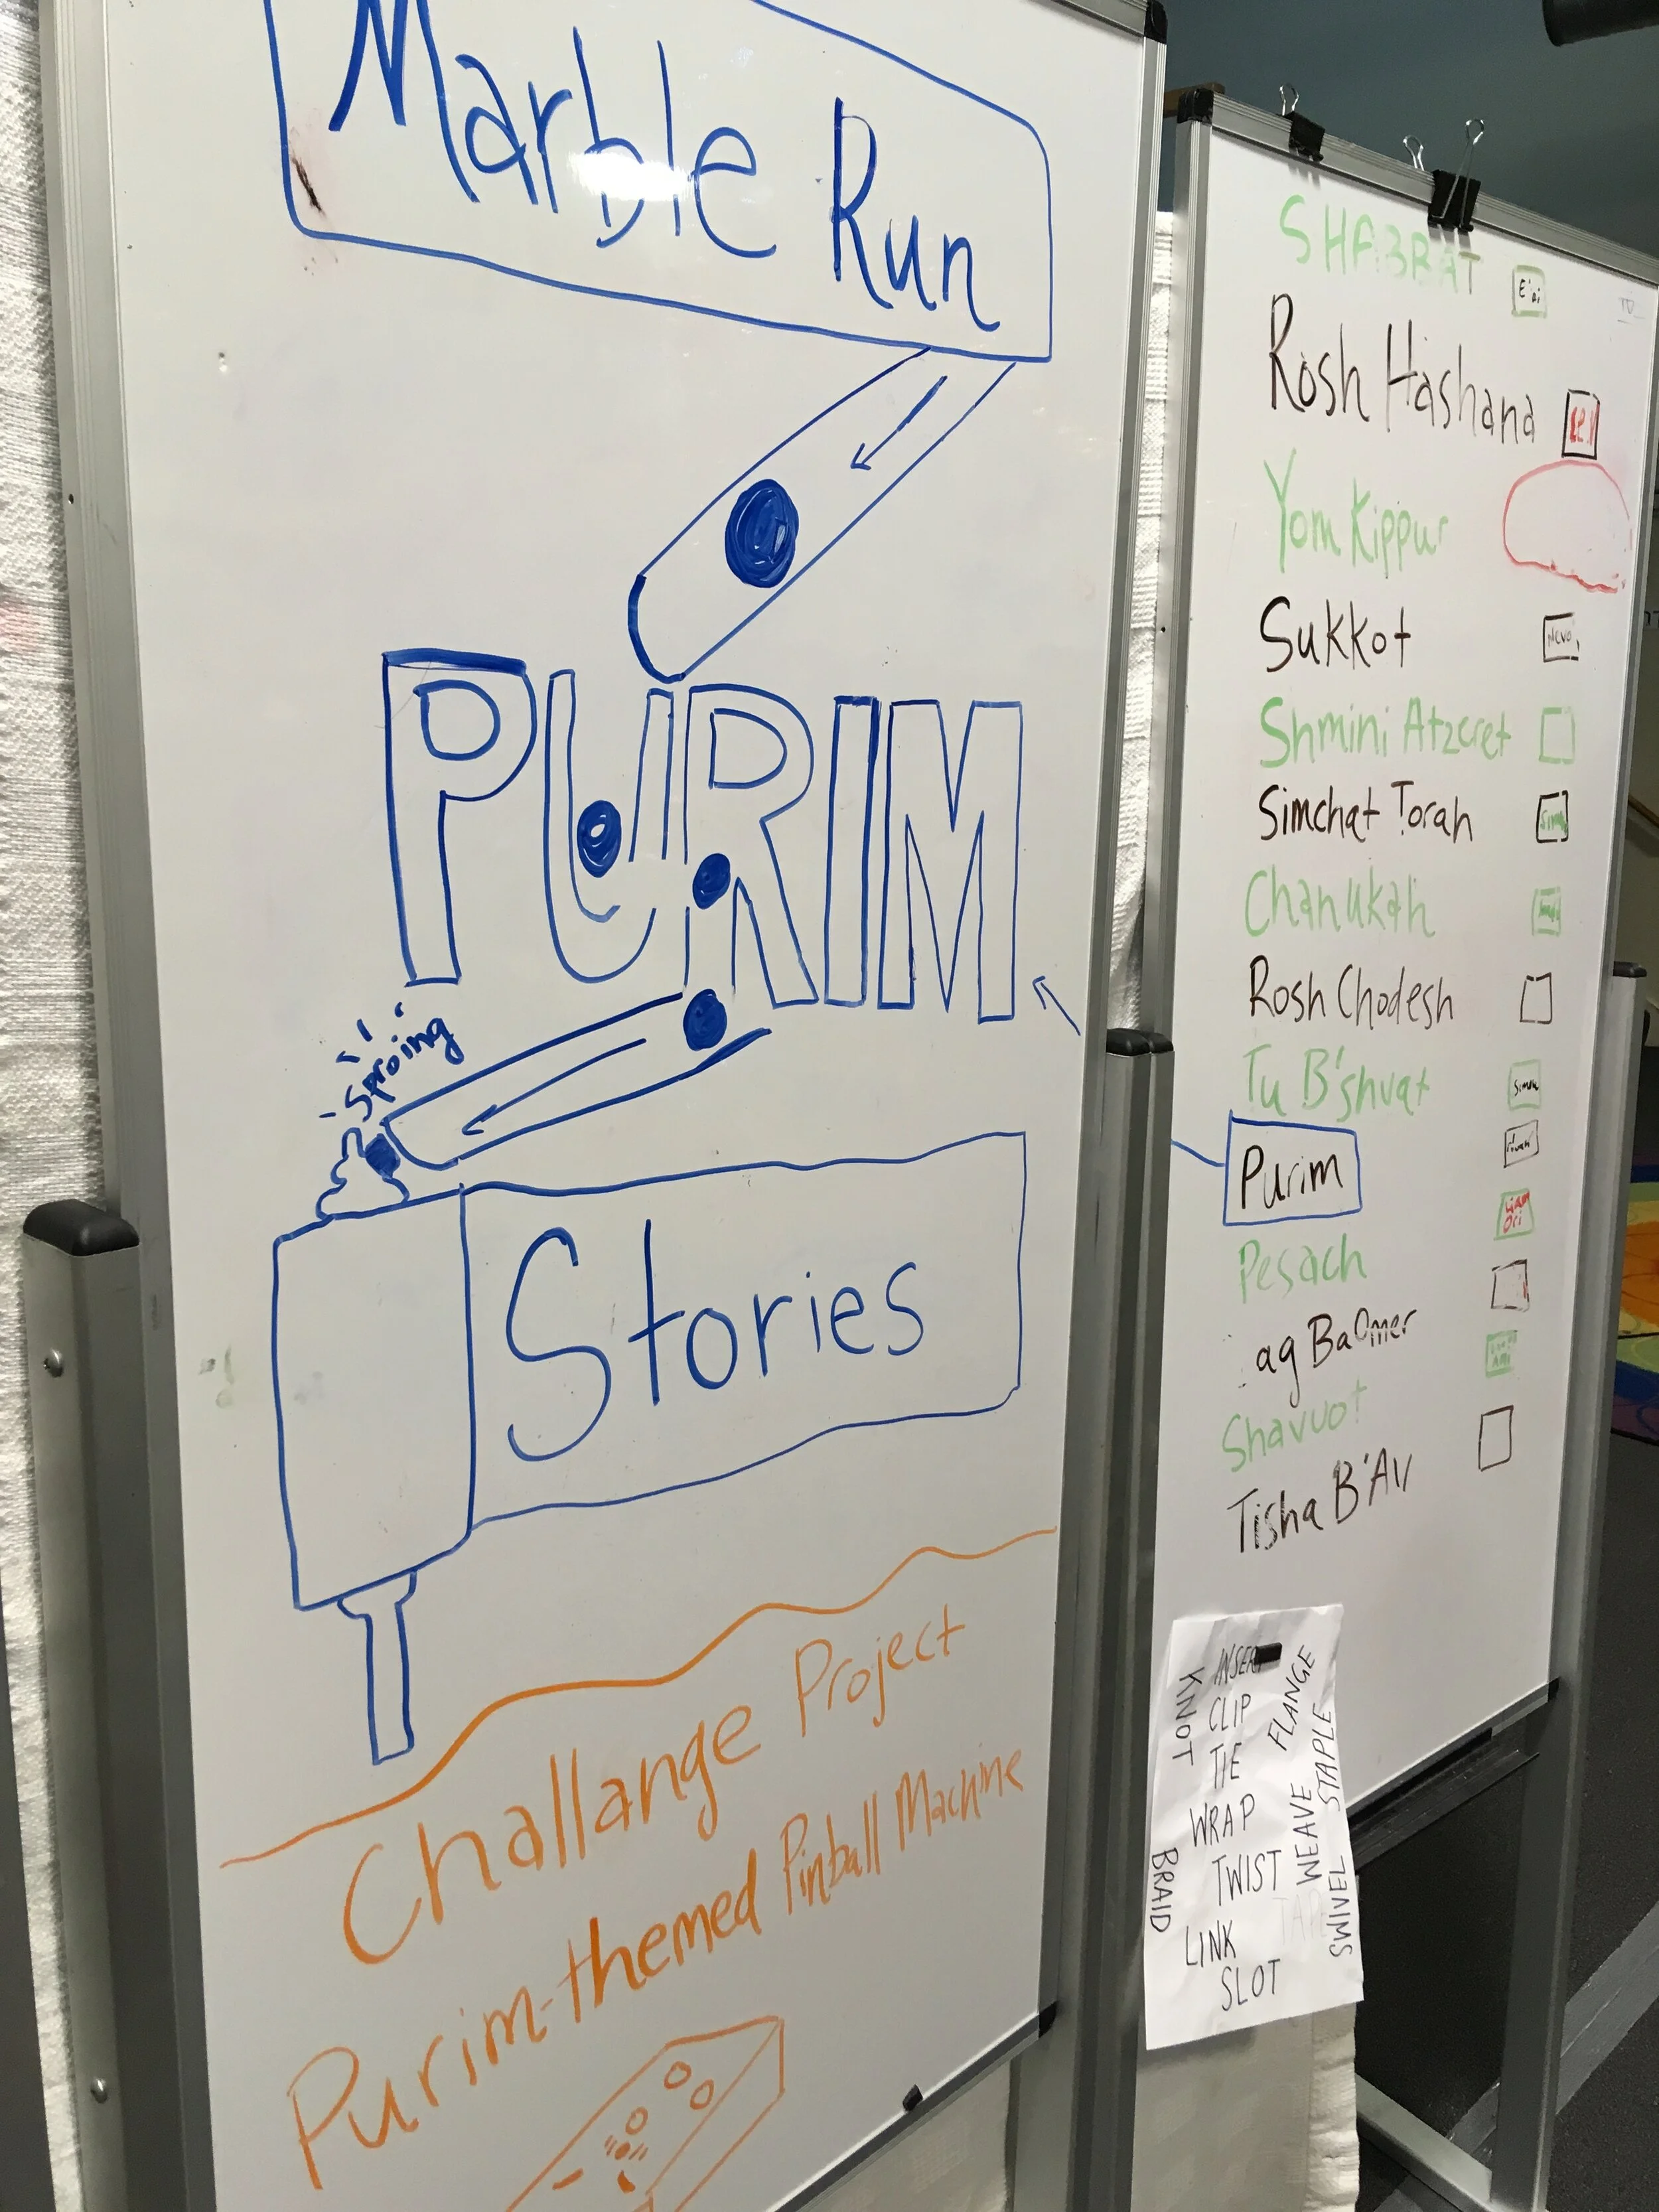 Marble Run
PURIM
Sproing
Stories
Challange Project
Purim-themed Pinball Machine
SHABBAT
Rosh Hashana
Yom Kippur
Sukkot
Shmini Atzeret
Simchat Torah
Chanukah
Rosh Chodesh
Tu B'shvat
Purim
Pesach
ag BaOmer
Shavuot
Tisha B'Av
INSERT
CLIP
TIE
WRAP
TWIST
LINK
SLOT
KNOT
BRAID
FLANGE
STAPLE
WEAVE
SWIVEL
TAP